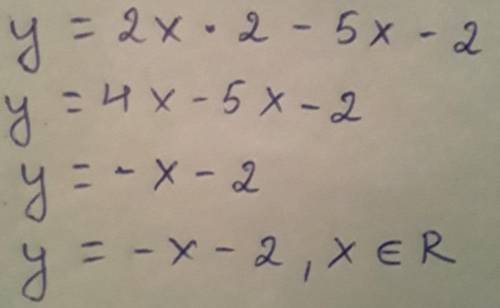 y = 2x · 2 - 5x - 2
y = 4x - 5x - 2
y = -x - 2
y = -x - 2, x ∈ R